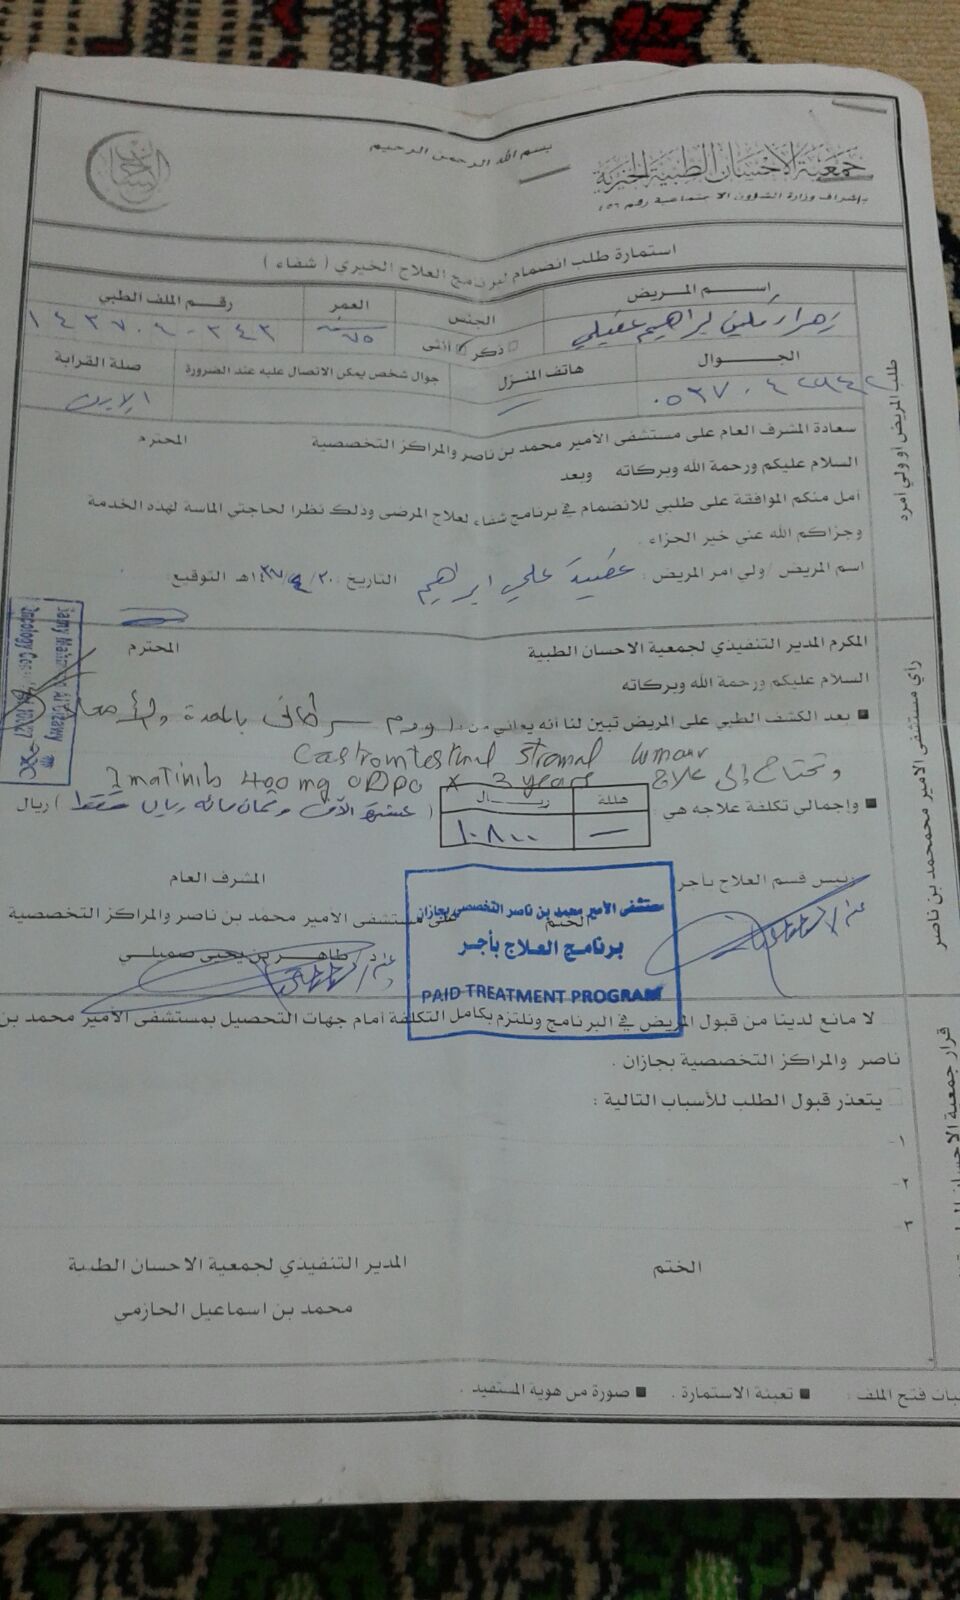 بسم الله الرحمن الرحيم
جمعية الاحسان الطبية الخيرية
بإشراف وزارة الشؤون الاجتماعية رقم ٤٥٦
استمارة طلب انضمام لبرنامج العلاج الخيري ( شفاء )
اسم المريض
الجنس
العمر
رقم الملف الطبي
ابراهيم عقيلي
ذكر أنثى
٧٥
الجوال
هاتف المنزل
جوال شخص يمكن الاتصال عليه عند الضرورة
صلة القرابة
طلب المريض أو ولي أمره
سعادة المشرف العام على مستشفى الأمير محمد بن ناصر والمراكز التخصصية المحترم
السلام عليكم ورحمة الله وبركاته وبعد
آمل منكم الموافقة على طلبي للانضمام في برنامج شفاء لعلاج المرضى وذلك نظرا لحاجتي الماسة لهذه الخدمة
وجزاكم الله عني خير الجزاء .
اسم المريض /ولي امر المريض : علي ابراهيم التاريخ : ٢٠/ ٤/ ١٤٣٧هـ التوقيع:
رأي مستشفى الامير محمد بن ناصر
المكرم المدير التنفيذي لجمعية الاحسان الطبية المحترم
السلام عليكم ورحمة الله وبركاته
■ بعد الكشف الطبي على المريض تبين لنا أنه يعاني من : ورم سرطاني بالمعدة والأمعاء
Gastrointestinal stromal tumour
وتحتاج إلى علاج Imatinib 400 mg OD PO x 3 years
هللة ريال
■ وإجمالي تكلفة علاجه هي : — ١٠٨٠٠ ( عشرة الآف وثمان مائة ريال فقط ) ريال
رئيس قسم العلاج بأجر
الختم
المشرف العام
على مستشفى الأمير محمد بن ناصر والمراكز التخصصية
د. طاهر بن يحيى صميلي
مستشفى الأمير محمد بن ناصر التخصصي بجازان
برنامج العلاج بأجر
PAID TREATMENT PROGRAM
لا مانع لدينا من قبول المريض في البرنامج ونلتزم بكامل التكلفة أمام جهات التحصيل بمستشفى الأمير محمد بن
ناصر والمراكز التخصصية بجازان .
يتعذر قبول الطلب للأسباب التالية :
١-
٢-
٣-
قرار جمعية الاحسان
الختم
المدير التنفيذي لجمعية الاحسان الطبية
محمد بن اسماعيل الحازمي
فتح الملف : ■ تعبئة الاستمارة . ■ صورة من هوية المستفيد .